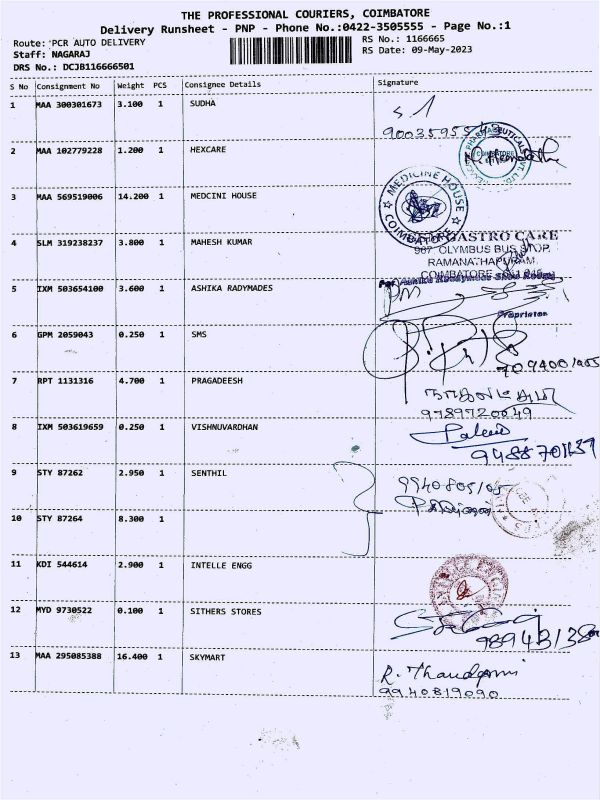 THE PROFESSIONAL COURIERS, COIMBATORE
Delivery Runsheet - PNP - Phone No.:0422-3505555 - Page No.:1
Route: PCR AUTO DELIVERY
RS No.: 1166665
Staff: NAGARAJ
RS Date: 09-May-2023
DRS No.: DCJB116666501
S No Consignment No Weight PCS Consignee Details Signature
1 MAA 300301673 3.100 1 SUDHA
2 MAA 102779228 1.200 1 HEXCARE
COIMBATORE
3 MAA 569519006 14.200 1 MEDCINI HOUSE
MEDICINE HOUSE
COIMBATORE
4 SLM 319238237 3.800 1 MAHESH KUMAR
GASTRO CARE
987, OLYMBUS BUS STOP,
RAMANATHAPURAM,
COIMBATORE
5 IXM 503654100 3.600 1 ASHIKA RADYMADES
Proprietor
6 GPM 2059043 0.250 1 SMS
7 RPT 1131316 4.700 1 PRAGADEESH
9789720049
8 IXM 503619659 0.250 1 VISHNUVARDHAN
9 STY 87262 2.950 1 SENTHIL
9940805105
10 STY 87264 8.300 1
11 KDI 544614 2.900 1 INTELLE ENGG
12 MYD 9730522 0.100 1 SITHERS STORES
13 MAA 295085388 16.400 1 SKYMART
9940819090